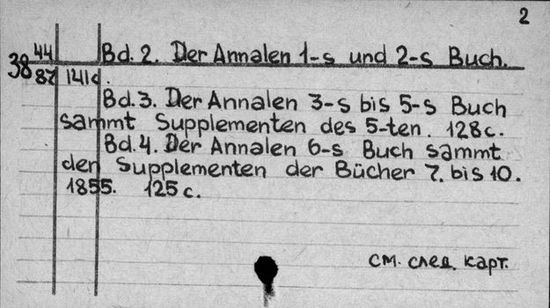 2
44 Bd. 2. Der Annalen 1-s und 2-s Buch.
38
87 141с.
Bd. 3. Der Annalen 3-s bis 5-s Buch
sammt Supplementen des 5-ten. 128с.
Bd. 4. Der Annalen 6-s Buch sammt
den Supplementen der Bücher 7. bis 10.
1855. 125с.
см. след. карт.